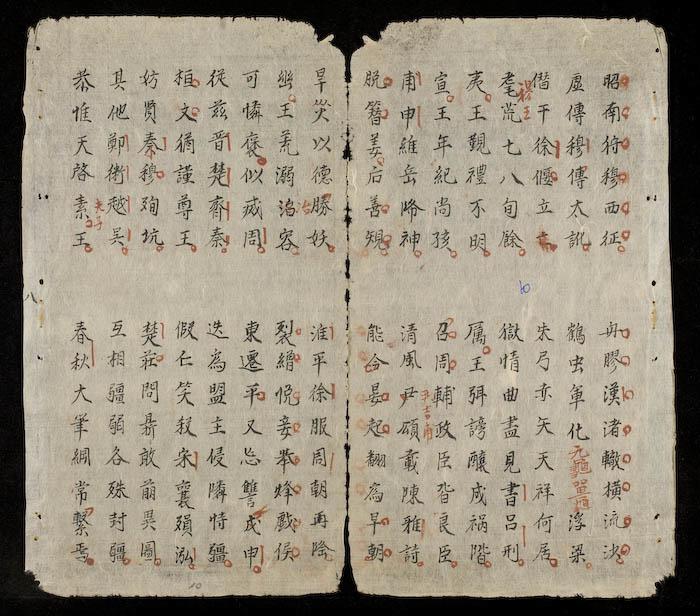 昭南狩穆西征
舟膠漢渚轍橫流沙
虛傳穆傳太訛
鶴虫軍化黿鼉浮梁
僭干徐偃立
朱弓赤矢天祥何居
穆王
耄荒七八旬餘
獄情曲盡見書呂刑
夷王覲禮不明
厲王弭謗釀成禍階
宣王年紀尚孩
召周輔政臣皆良臣
甫申維岳降神
尹吉甫
清風尹頌載陳雅詩
脫簪姜后善規
能令晏起翻為早朝
旱災以德勝妖
淮平徐服周朝再隆
冶
幽王荒溺冶容
裂繒悅妾舉烽戲侯
可憐褒似烕周
東遷平又忘讐戍申
從茲晉楚齊秦
迭為盟主侵隣恃疆
桓文猶謹尊王
假仁笑殺宋襄殞泓
妨賢秦穆殉坑
楚莊問鼎敢萠異圖
其他鄭衛越吳
互相疆弱各殊封疆
夫子
恭惟天啓素王
春秋大筆綱常繫焉
八
10